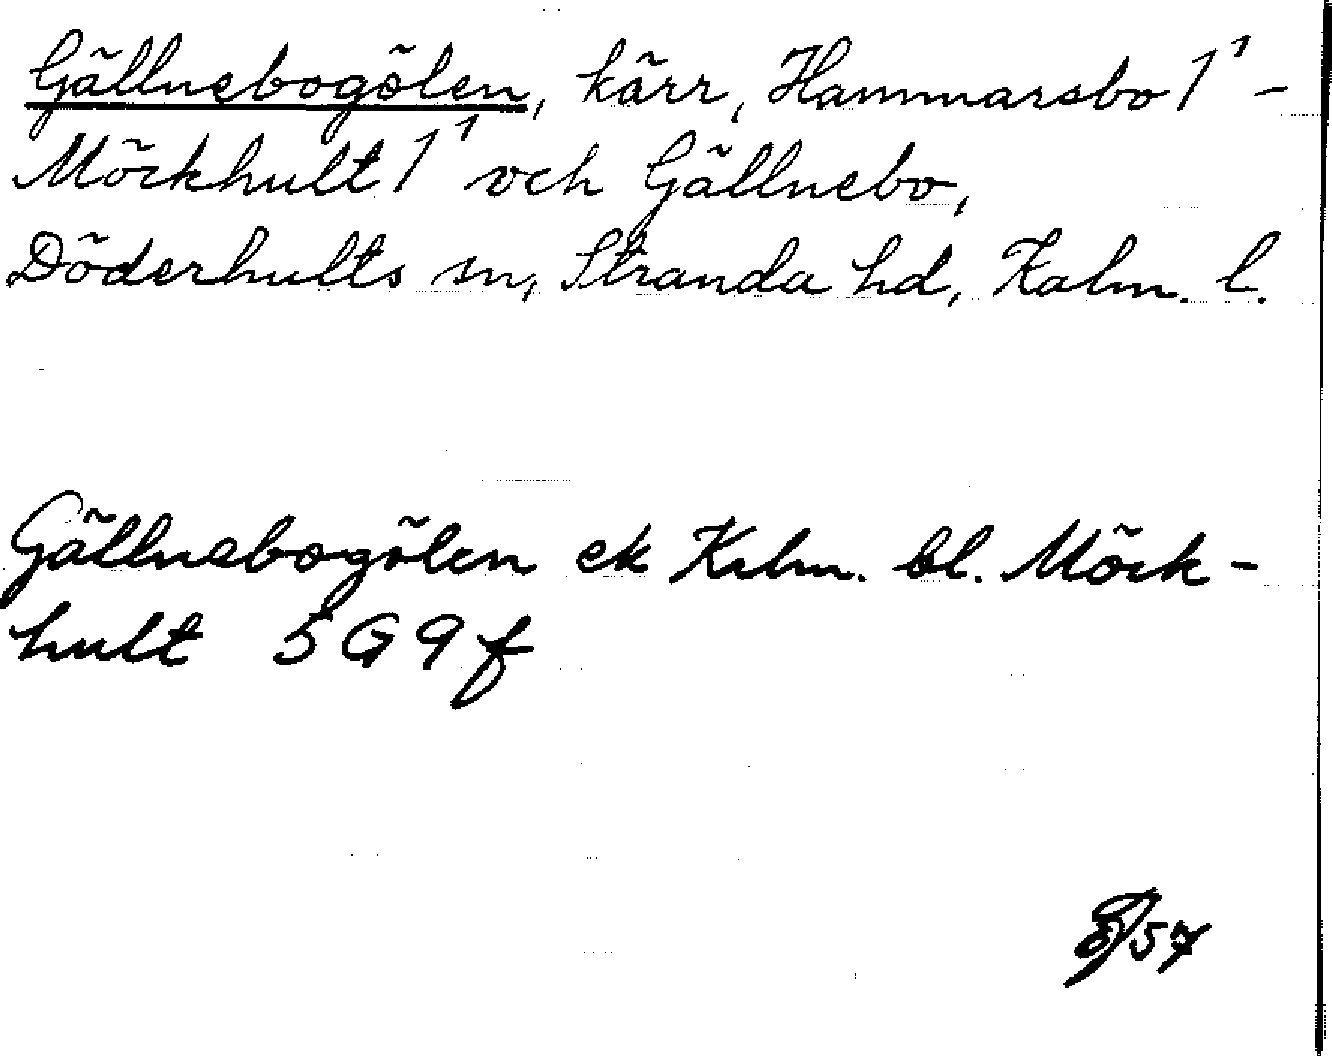 Gällnebogölen, kärr, Hammarsbo 1¹ -
Möckhult 1¹ och Gällnebo,
Döderhults sn, Stranda hd, Kalm. l.
Gällnebogölen ek Kalm. bl. Möck-
hult 5 G 9 f
/57